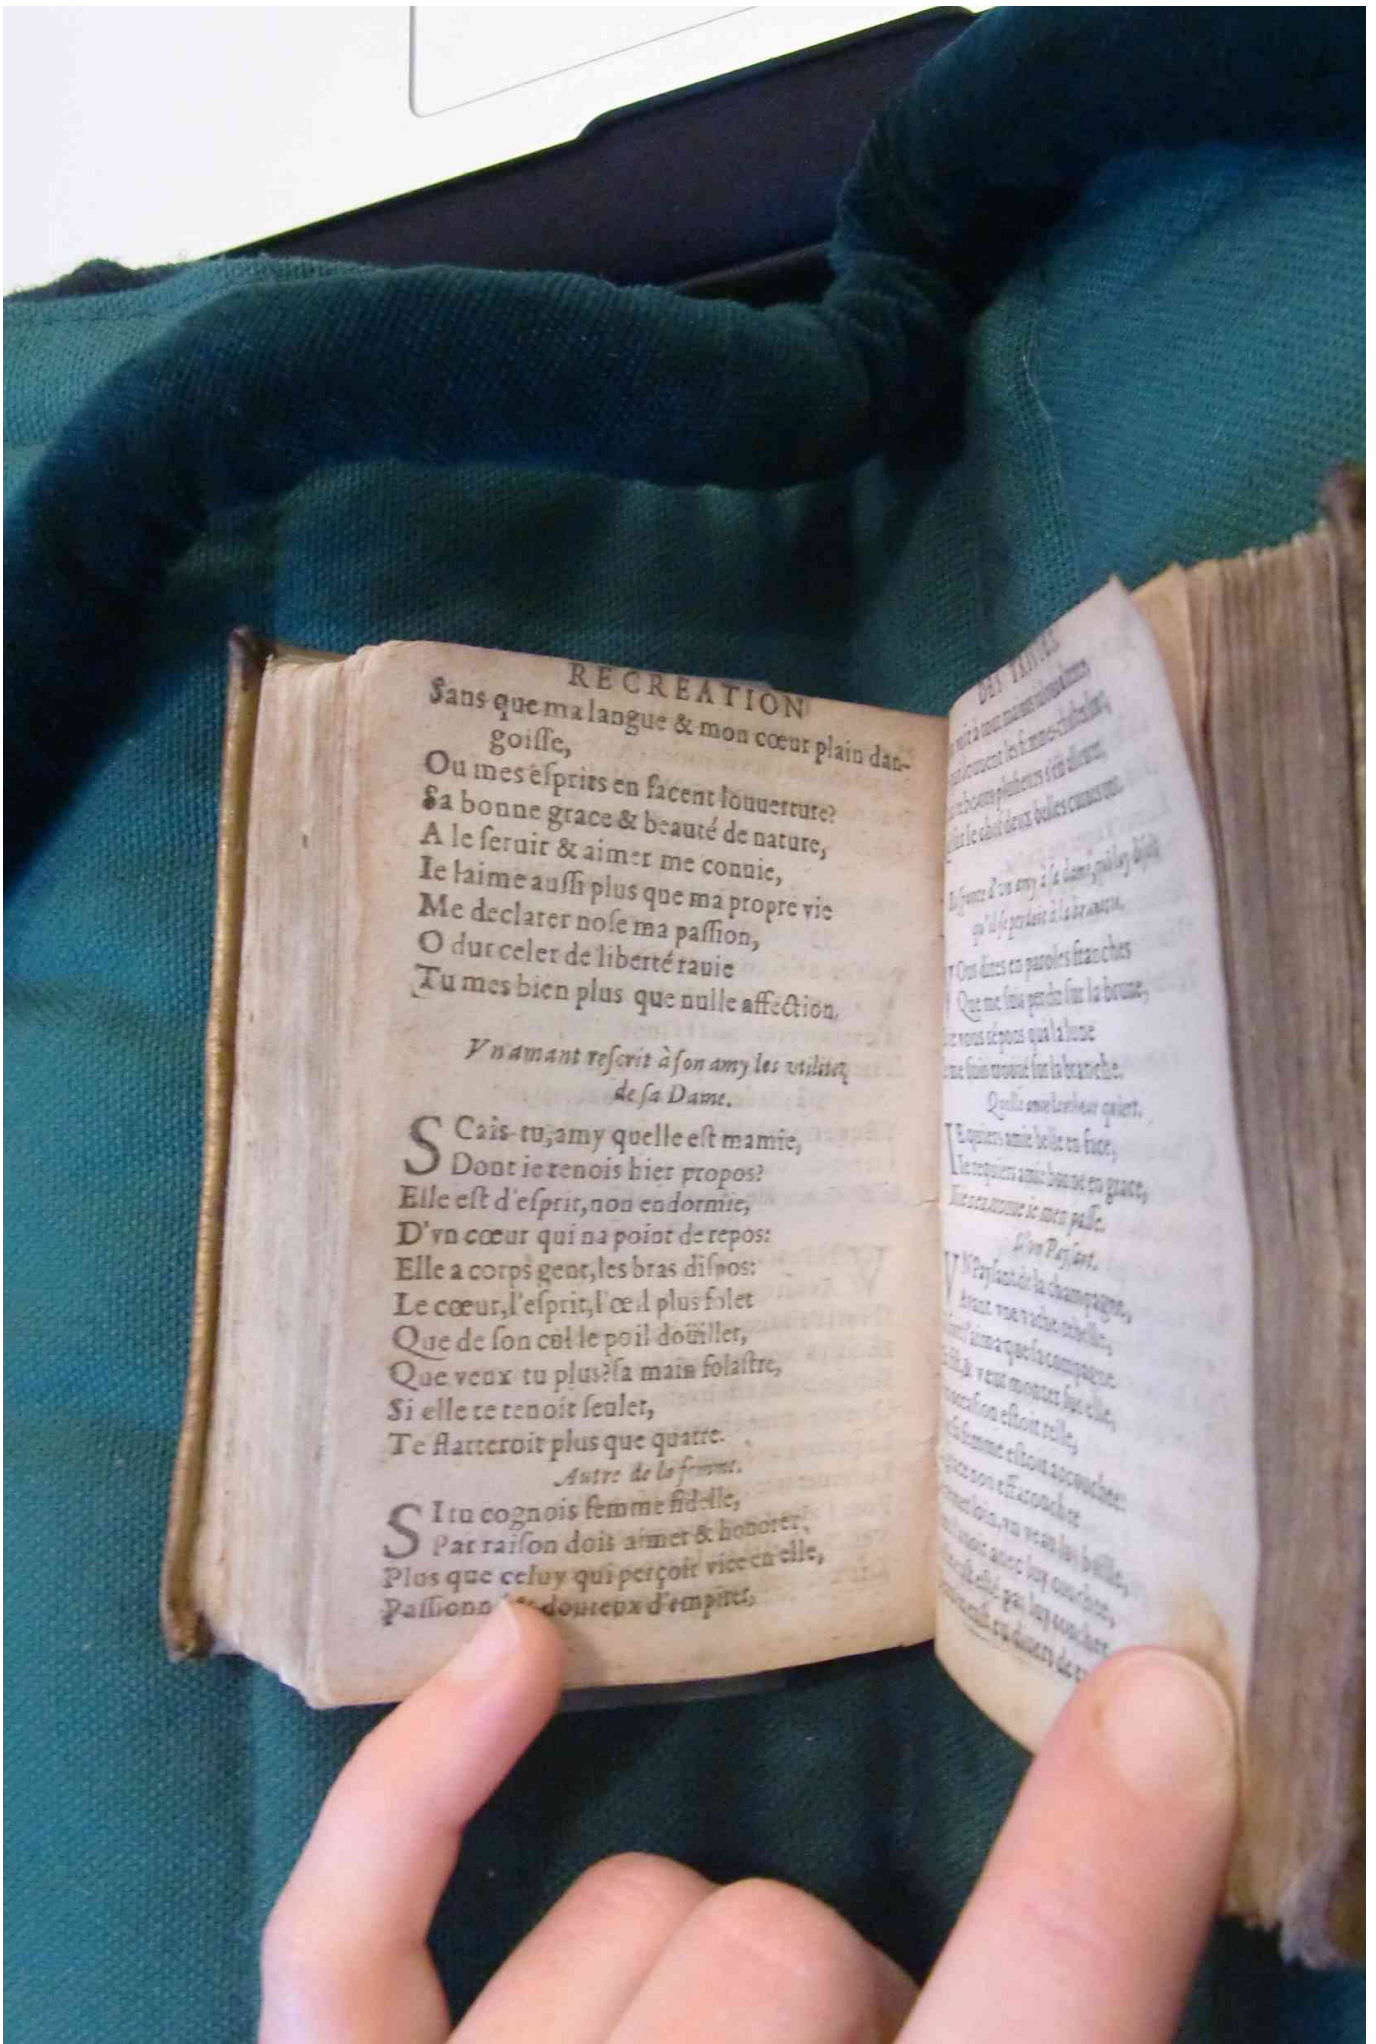 RECREATION
Sans que ma langue & mon cœur plain dan-
goiſſe,
Ou mes eſprits en facent louuerture?
Sa bonne grace & beauté de nature,
A le ſeruir & aimer me conuie,
Ie laime auſſi plus que ma propre vie
Me declarer noſe ma paſſion,
O dur celer de liberté rauie
Tu mes bien plus que nulle affection.
Vn amant reſcrit à ſon amy les vtilitez
de ſa Dame.
SCais-tu, amy quelle eſt mamie,
Dont ie tenois hier propos?
Elle eſt d'eſprit, non endormie,
D'vn cœur qui na point de repos:
Elle a corps gent, les bras diſpos:
Le cœur, l'eſprit, l'œil plus folet
Que de ſon cul le poil doüillet,
Que veux tu plus? ſa main folaſtre,
Si elle te tenoit ſeulet,
Te flatteroit plus que quatre.
Autre de la femme.
SI tu cognois femme fidelle,
Par raiſon dois aimer & honorer,
Plus que celuy qui perçoit vice en elle,
Paſſionn douteux d'empirer,
DES TRISTES
d'vn amy à ſa dame, qui luy diſoit
qu'il ſe perdoit à la
VOus dites en paroles franches
Que me ſuis perdu ſur la brune,
vous répons qu'a la lune
me ſuis trouué ſur la branche.
Quelle amie quiert.
IE quiers amie belle en face,
Ie requiers amie bonne en grace,
ie men paſſe.
D'vn Payſant.
VN Payſant de la champagne,
Ayant vne vache rebelle,
que ſa compagne
& veut monter ſus elle,
eſtoit telle,
ſa femme eſtoit accouchee:
non effarouchee
loin, vn veau luy baille,
auec luy couchee,
par luy